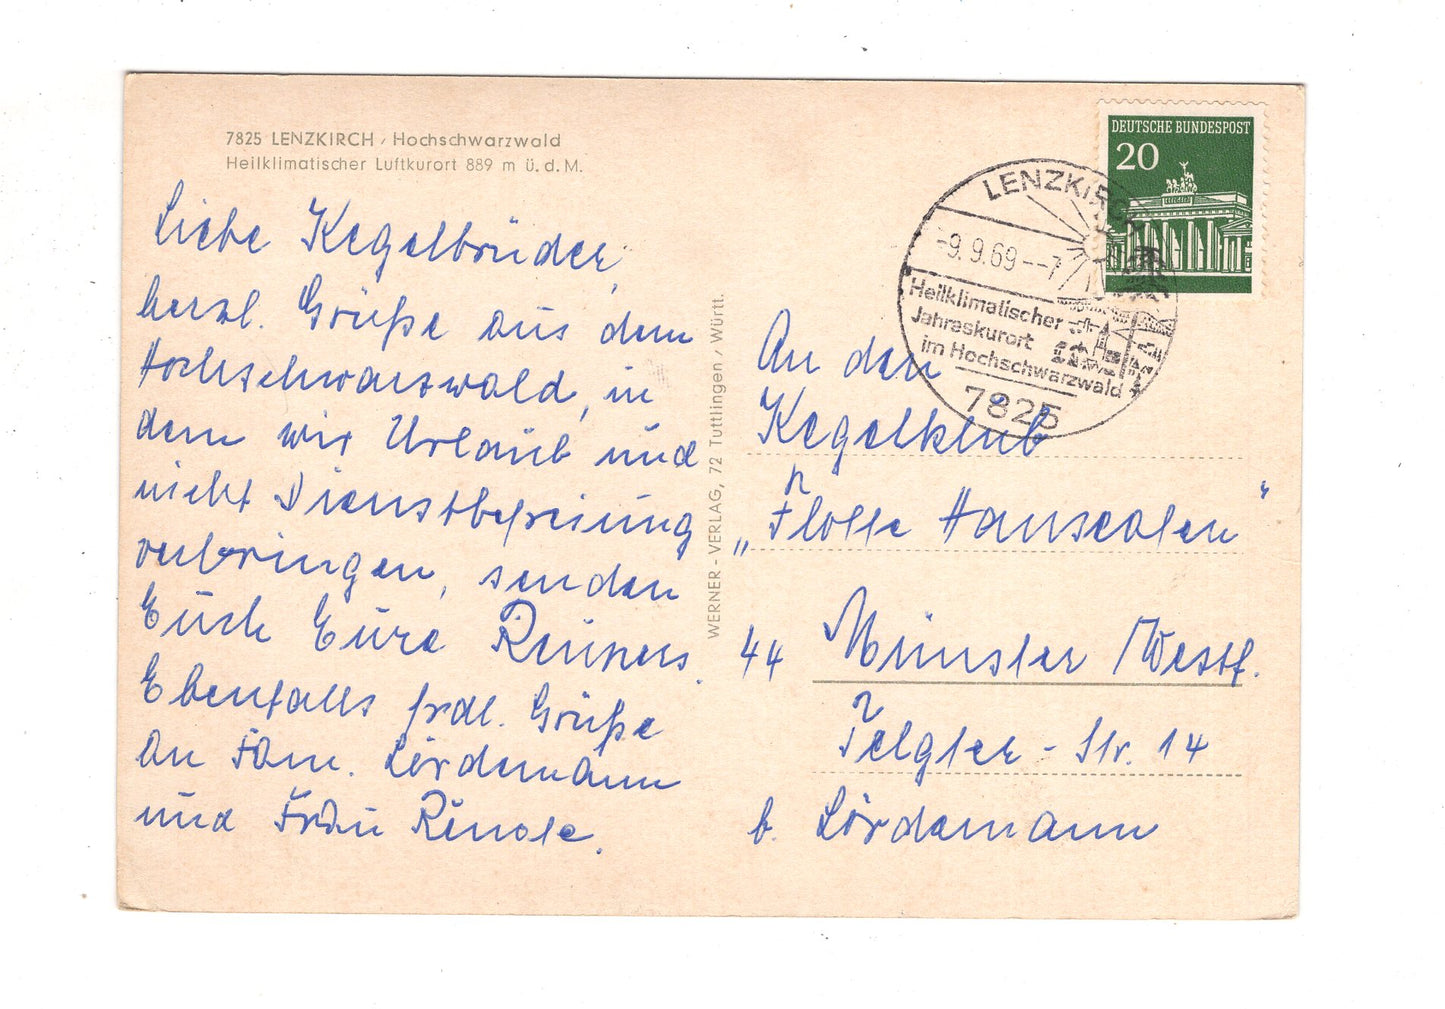 7825 LENZKIRCH / Hochschwarzwald
Heilklimatischer Luftkurort 889 m ü. d. M.
Liebe Kegelbrüder,
herzl. Grüße aus dem
Hochschwarzwald, in
dem wir Urlaub und
nicht Dienstbefreiung
verbringen, senden
Euch Eure
Ebenfalls frdl. Grüße
an Fam. Lördemann
und Frau
WERNER - VERLAG, 72 Tuttlingen / Württ.
DEUTSCHE BUNDESPOST
20
LENZKIRCH
-9. 9. 69 -- 7
Heilklimatischer
Jahreskurort
im Hochschwarzwald
7825
An den
Kegelklub
„Flotte Hanseaten"
44 Münster / Westf.
Telgter - Str. 14
b. Lördemann